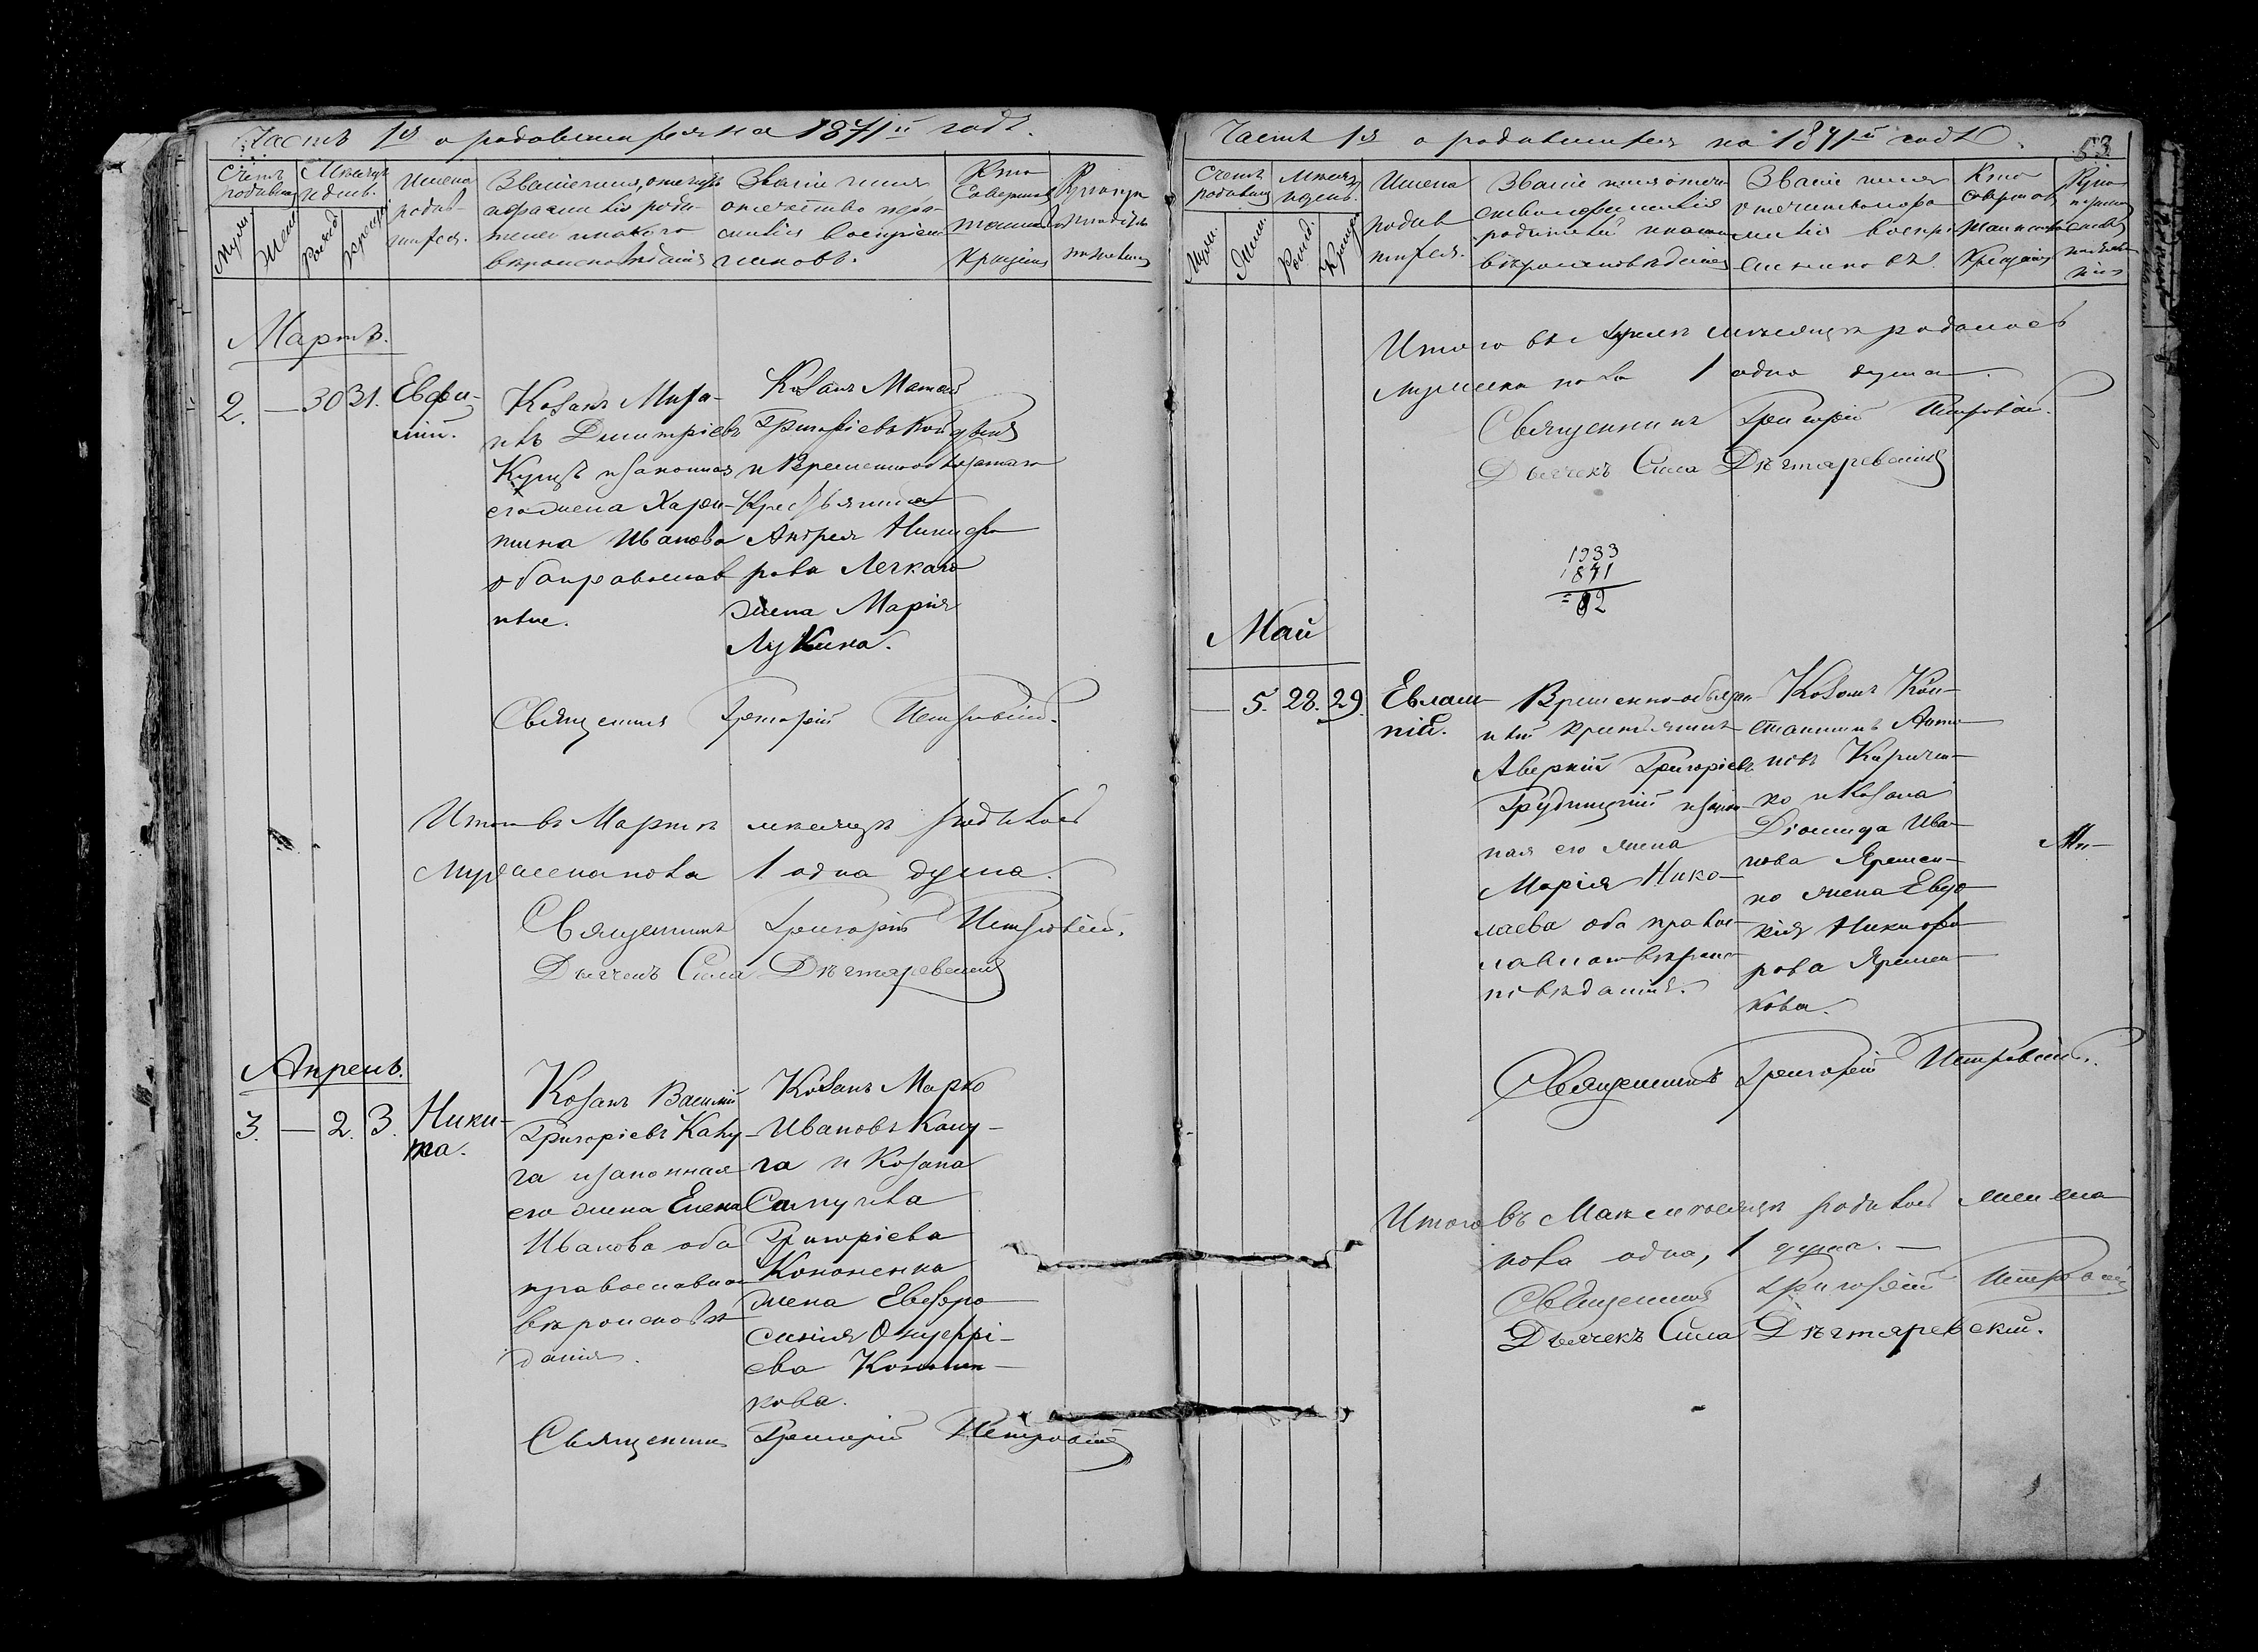 Часть 1я о родившихся на 1871й годъ.
Счетъ родившихся
Мѣсяцъ и день.
Имена родившихся.
Званіе, имя, отчество и фамилія родителей и какого вѣроисповѣданія
Званіе имя отечество и фамилія воспріемниковъ.
Кто совершалъ таинство крещенія
Муж.
Жен.
Рожд.
Крещен.
Мартъ.
2. — 30 31. Евфи-
мій.
Козакъ
Димитріевъ
Куцъ и законная
его жена Хари-
тина Иванова
оба православ
ные.
Козакъ Матвій
Григоріевъ
и Временнообязанаго
Крестьянина
Андрея Никифо
рова Легкаго
жена Марія
Лукина.
Священникъ Григорій Петровскій.
Итого въ Мартѣ мѣсяцѣ родилось
Мужеска пола 1 одна душа.
Священникъ Григорій Петровскій.
Дьячекъ Сила Дѣгтяревскій
Апрель.
3. — 2. 3. Ники-
та.
Козакъ Василій
Григоріевъ Калу-
га и законная
его жена Елена
Иванова оба
православнаго
вѣроисповѣ
данія.
Козакъ Марко
Ивановъ Калу-
га и Козака
Самуила
Григоріева
Кононенка
жена Евфро
синія Онуфрі-
ева Кононен-
кова.
Священникъ Григорій Петровскій
Часть 1я о родившихся на 1871й годъ.
53
Счетъ родивших
Мѣсяцъ и день.
Имена родившихся.
Званіе имя отечество и фамилія родителей и какого вѣроисповѣданія
Званіе имя отечество и фамилія воспріемниковъ
Кто совершалъ таинство крещенія
Муж.
Жен.
Рожд.
Крещен
Итого въ Апрелѣ мѣсяцѣ родилось
мужеска пола 1 одна душа.
Священникъ Григорій Петровскій.
Дьячекъ Сила Дѣгтяревскій
1933
1871
= 62
Май
— 5. 28. 29. Евлам-
пія.
Временно-обязан
ный крестьянинъ
Аверкій Григоріевъ
Грудницкій и закон
ная его жена
Марія Нико-
лаева оба право-
славнаго вѣроис-
повѣданія.
Козакъ Кон-
стантинъ Анто
новъ Киричен-
ко и Козака
Діомида Ива-
нова Яремен-
ко жена Евдо
кія Никифо
рова Яремен-
кова.
Священникъ Григорій Петровскій.
Итого въ Маѣ мѣсяцѣ родилось женска
пола одна, 1 душа. —
Священникъ Григорій Петровскій
Дьячекъ Сила Дѣгтяревскій.